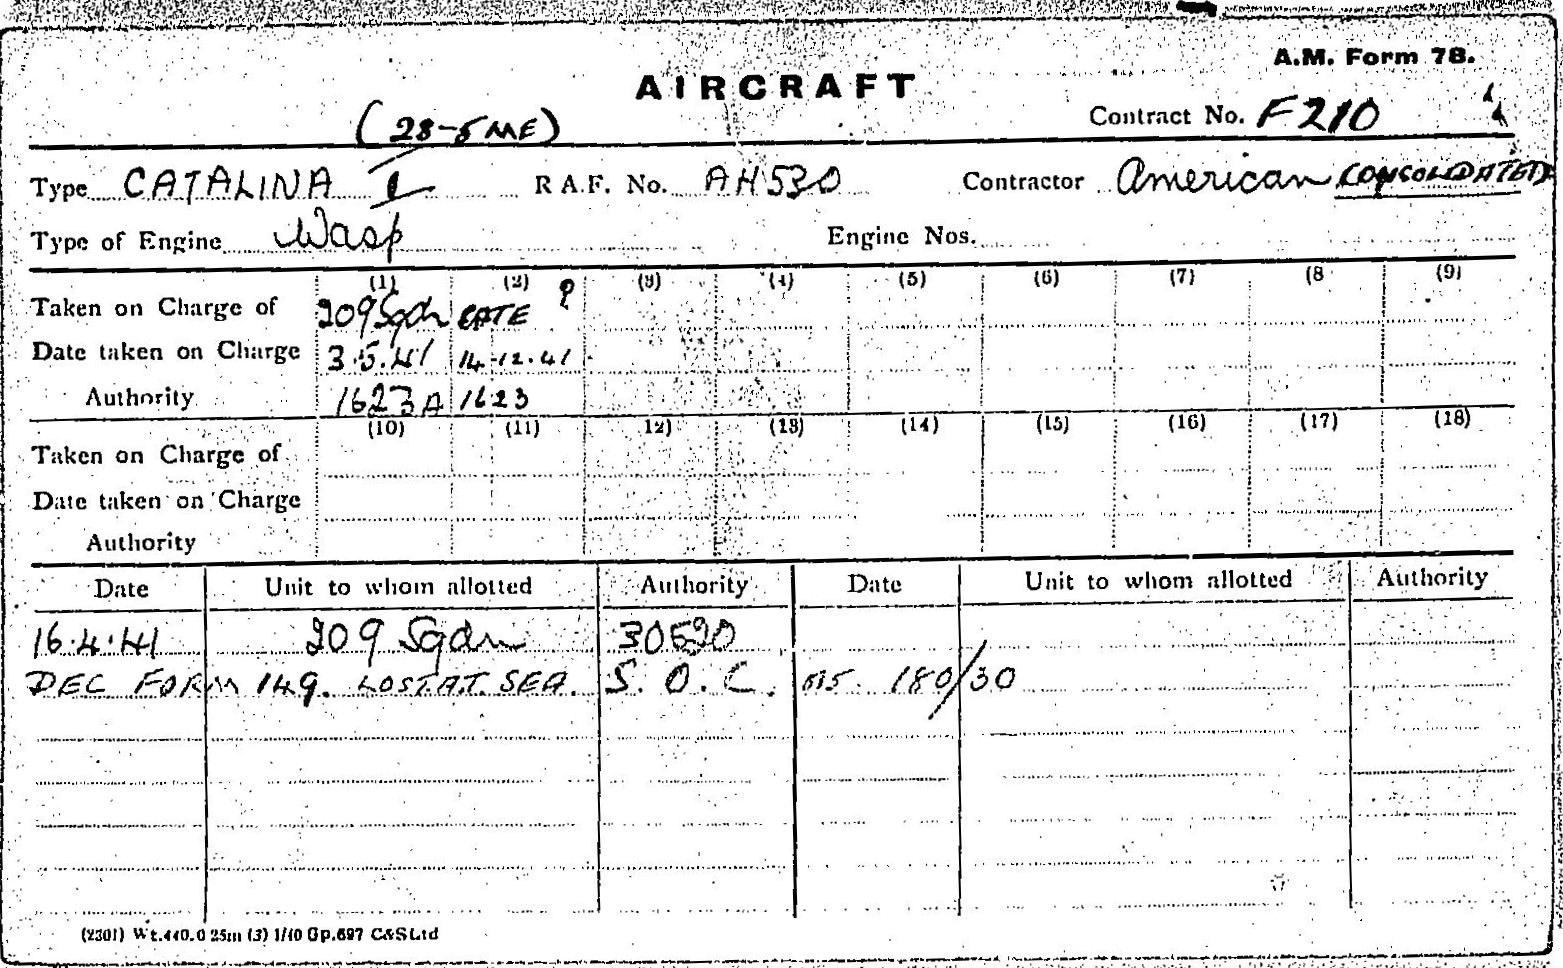 A.M. Form 78.
AIRCRAFT
Contract No. F210
(28-5ME)
Type CATALINA I R.A.F. No. AH530 Contractor American CONSOLIDATED
Type of Engine Wasp Engine Nos.
(1) (2) (3) (4) (5) (6) (7) (8 (9)
Taken on Charge of 209 Sqdn CATE ?
Date taken on Charge 3.5.41 14.12.41
Authority 1623A 1623
(10) (11) 12) (13) (14) (15) (16) (17) (18)
Taken on Charge of
Date taken on Charge
Authority
Date Unit to whom allotted Authority Date Unit to whom allotted Authority
16.4.41 209 Sqdn 30520
DEC FORM 149. LOST AT SEA. S.O.C. 180/30
(2301) Wt.440.0 25m (3) 1/40 Gp.697 C&SLtd